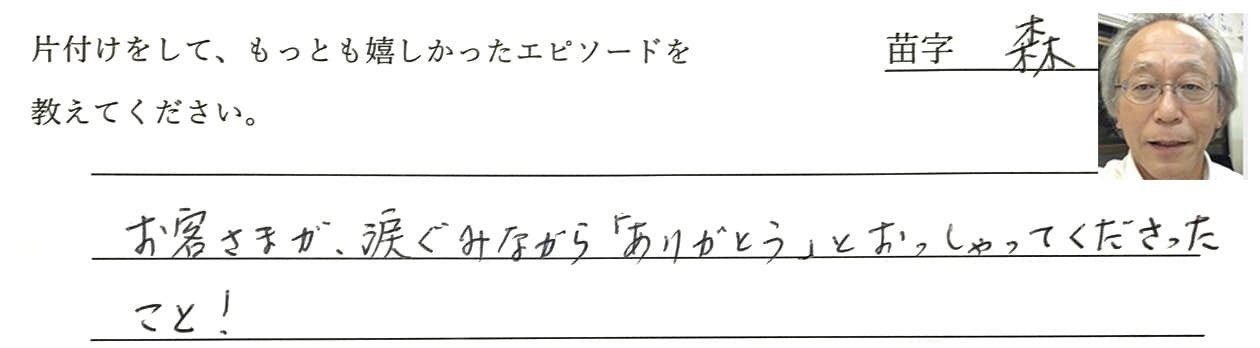 片付けをして、もっとも嬉しかったエピソードを
教えてください。
苗字 森
お客さまが、涙ぐみながら「ありがとう」とおっしゃってくださった
こと！